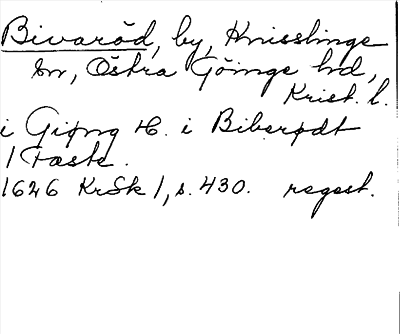 Bivaröd, by, Knisslinge
sn, Östra Göinge hd,
Krist. l.
i Giøng H. i Biberødt
1 Fæste.
1626 KrSk 1, s. 430. regest.